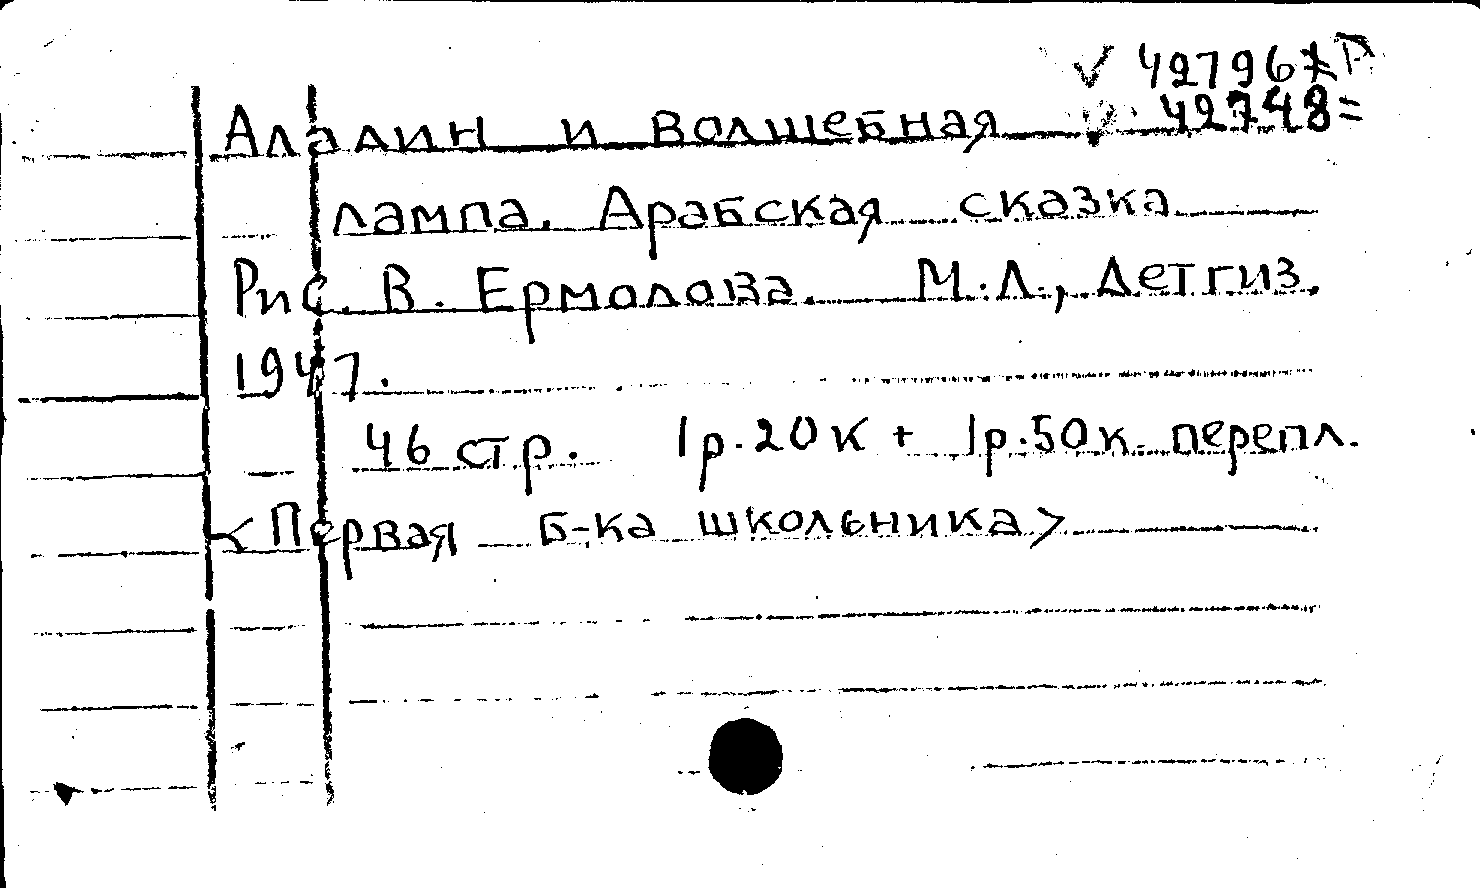 ✓ 42796
42748=
Аладин и волшебная
лампа. Арабская сказка
Рис. В. Ермолова. М.Л., Детгиз.
1947.
46 стр. 1р.20к + 1р.50к. перепл.
<Первая б-ка школьника>